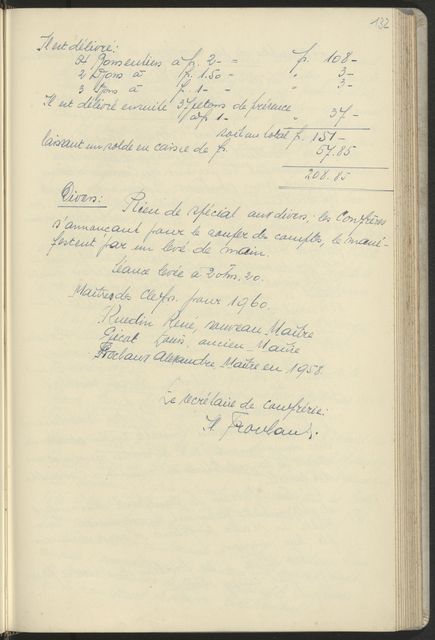 132
Il est délivré:
54 Jonsentiers à fr. 2.- = fr. 108-
2 Djons à fr. 1.50 = " 3-
3 Djons à fr. 1.- = " 3-
Il est délivré ensuite 37 jetons de présence
à fr 1- " 37-
soit au total fr. 151-
laissant un solde en caisse de fr. 57.85
208.85
Divers: Rien de spécial aux divers; les Confrères
s'annonçant pour le souper des comptes, le mani-
festent par un levé de main.
Séance levée à 20hrs.20.
Maîtres des Clefs. pour 1960.
Ruedin René, nouveau Maître
Gicot Louis, ancien Maître
Frochaux Alexandre, Maître en 1958.
Le secrétaire de confrérie:
A Frochaux.